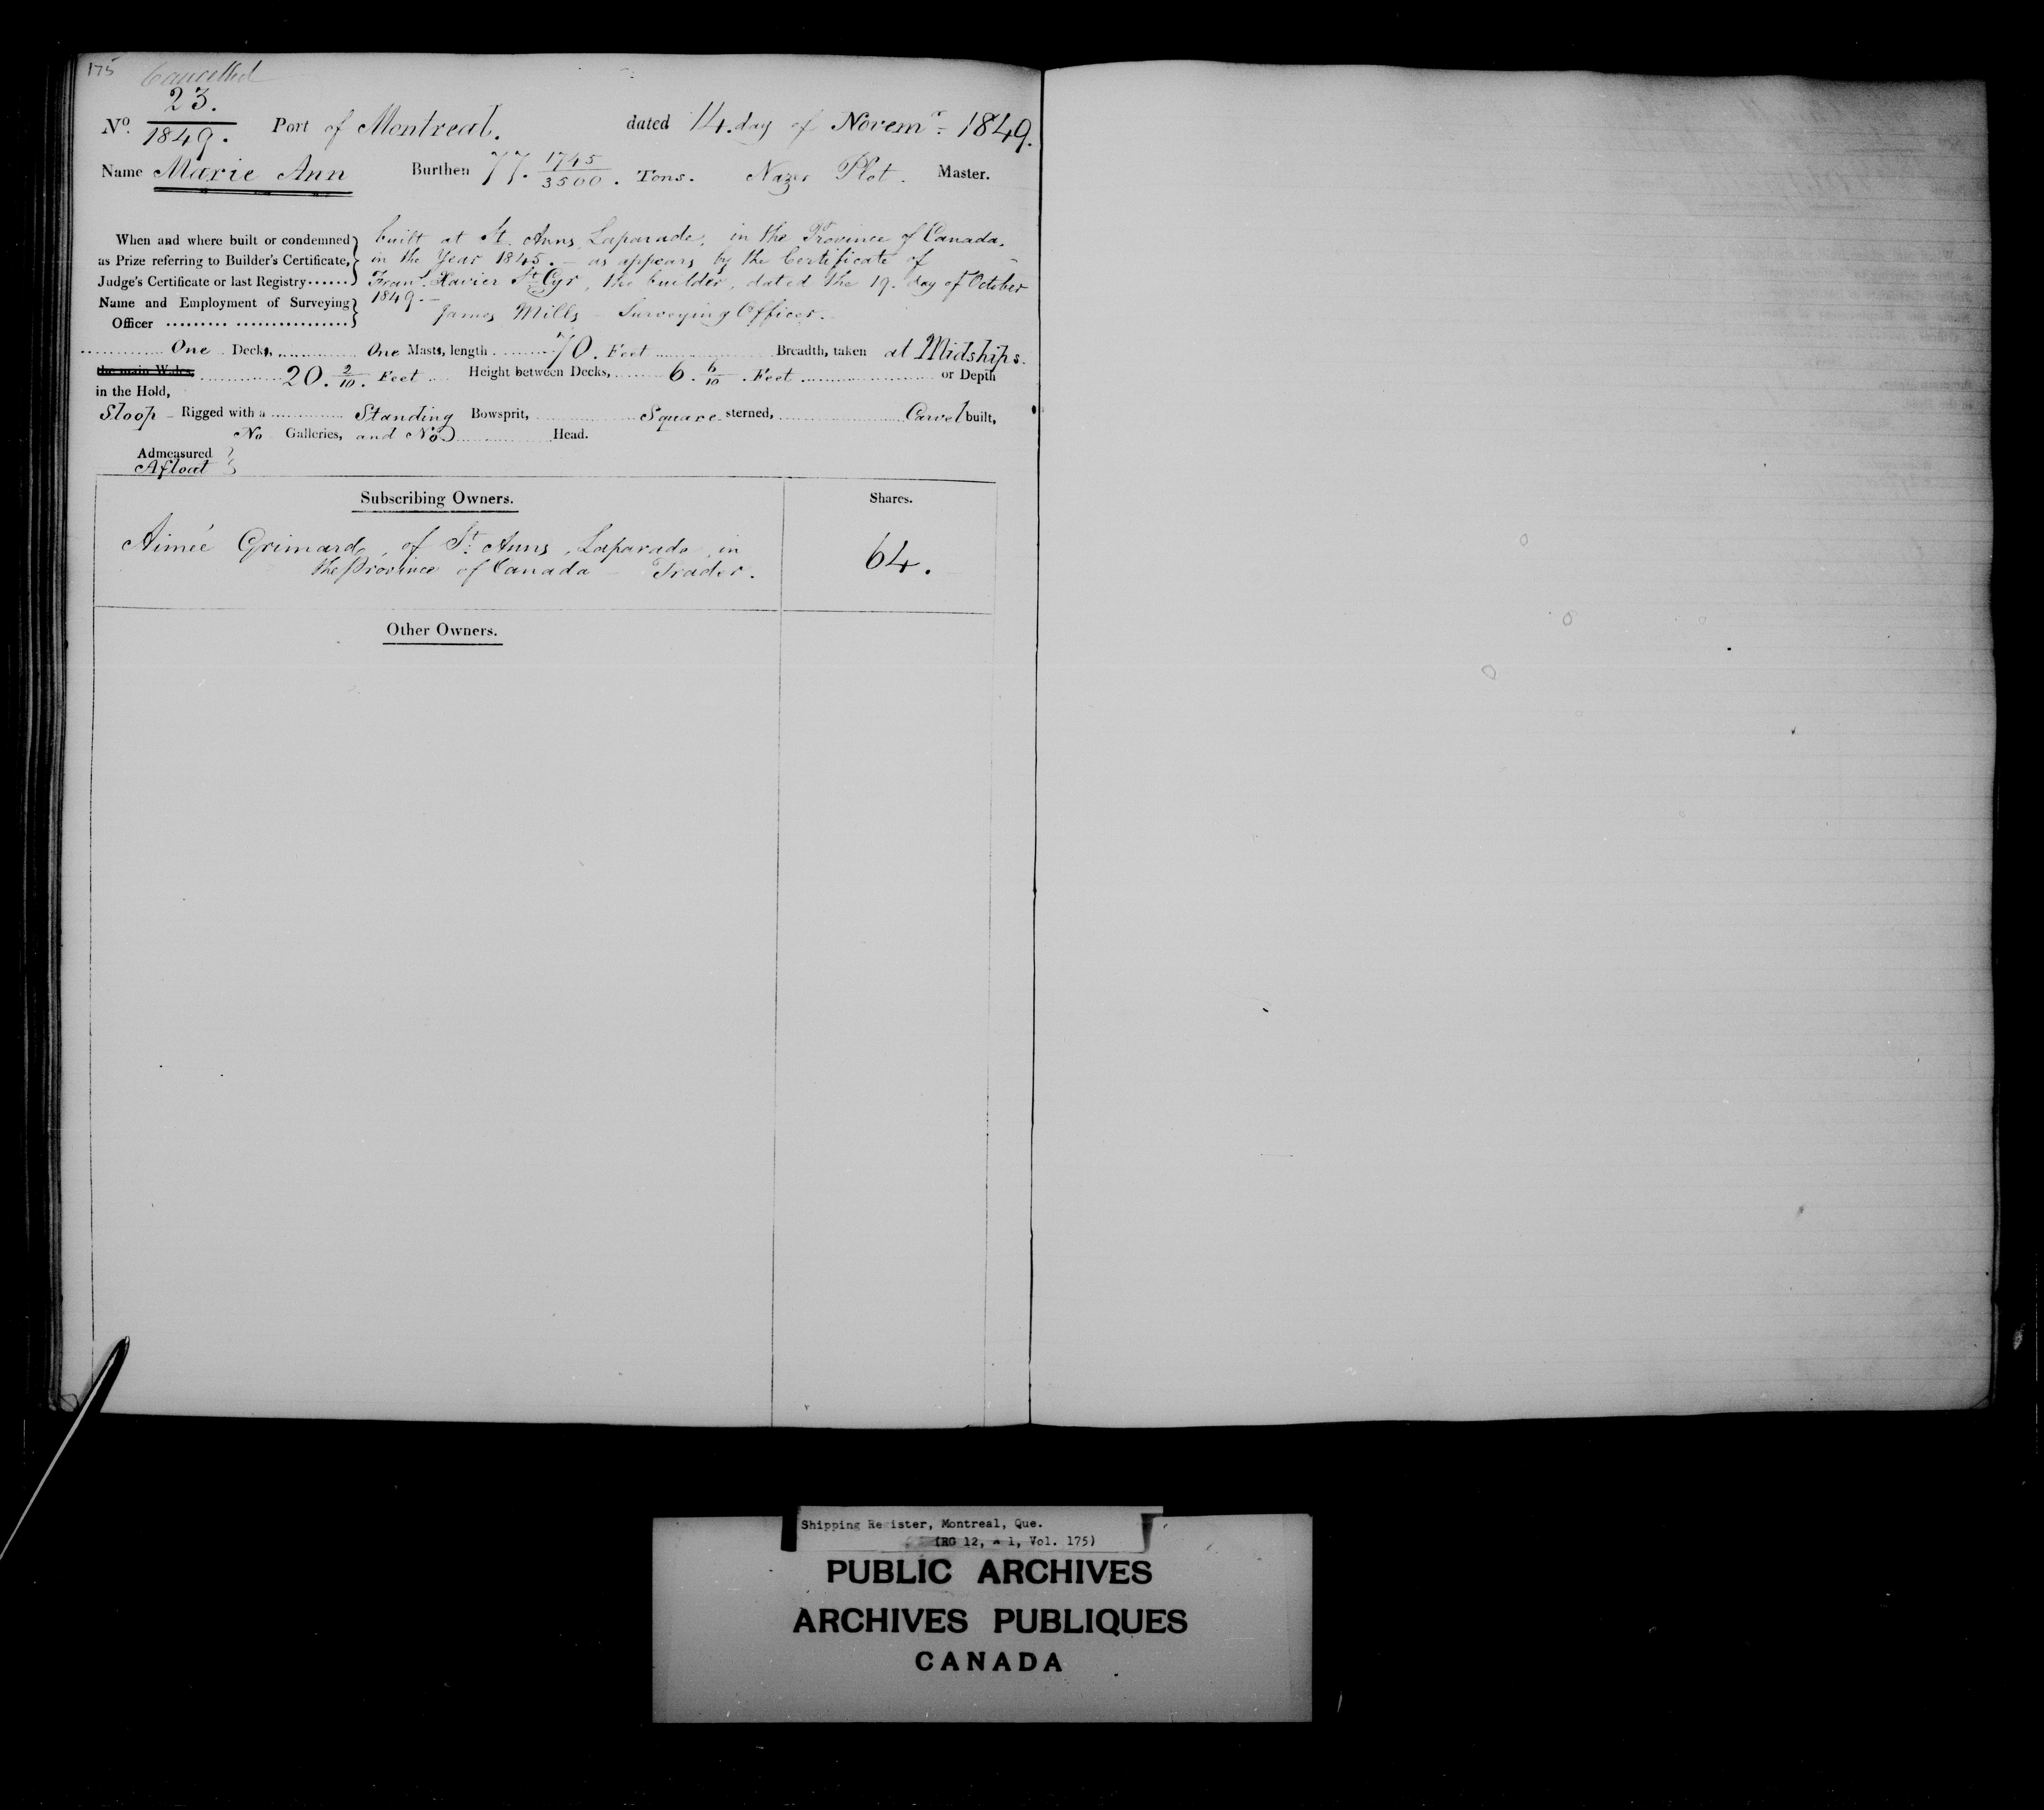 175 Cancelled
No. 23. / 1849. Port of Montreal. dated 14. day of Novemr. 1849.
Name Marie Ann Burthen 77. 1745/3500. Tons. Nazer Plot. Master.
When and where built or condemned built at St. Anns Laparade, in the Province of Canada.
as Prize referring to Builder's Certificate, in the Year 1845. – as appears by the Certificate of –
Judge's Certificate or last Registry...... Frans. Xavier St. Cyr, the builder, dated the 19. day of October
Name and Employment of Surveying 1849. –
Officer ......... ................ James Mills – Surveying Officer.
One Decks, One Masts, length 70. Feet Breadth, taken at Midships.
the main Wales, 20. 2/10. Feet Height between Decks, 6. 6/10. Feet or Depth
in the Hold,
Sloop – Rigged with a Standing Bowsprit, Square sterned, Carvel built,
No Galleries, and No Head.
Admeasured
Afloat
Subscribing Owners. Shares.
Aimée Grimard, of St. Anns, Laparade, in
the Province of Canada – Trader. 64.
Other Owners.
Shipping Register, Montreal, Que.
(RG 12, A 1, Vol. 175)
PUBLIC ARCHIVES
ARCHIVES PUBLIQUES
CANADA